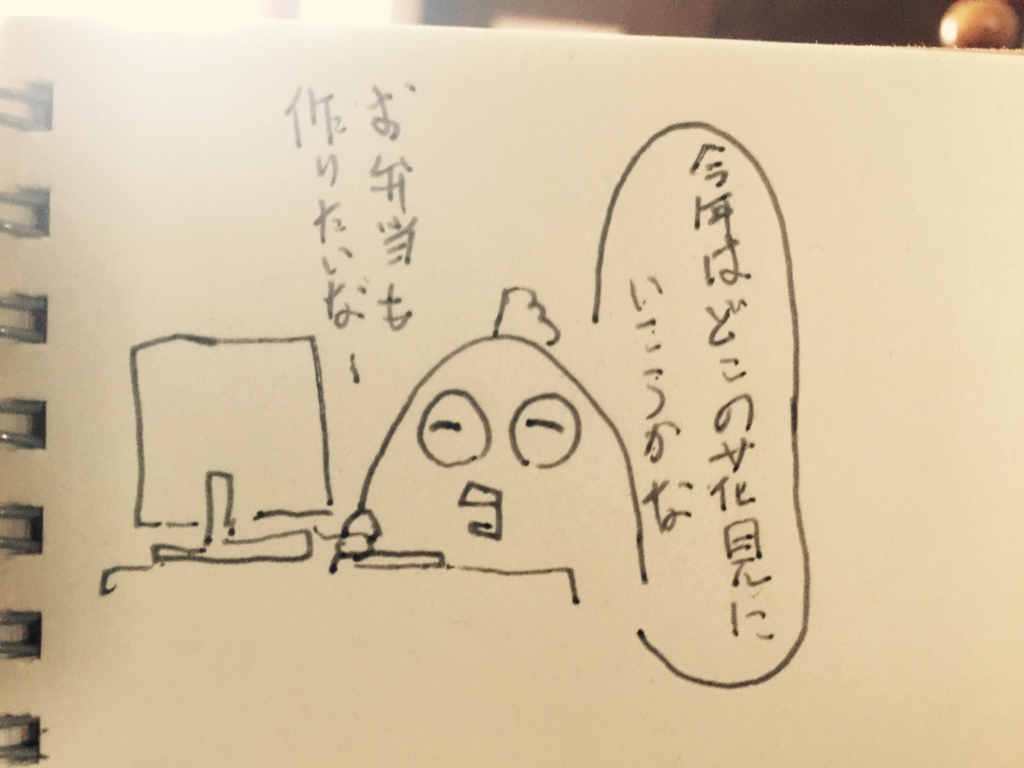 今年はどこの花見に
いこうかな
お弁当も
作りたいなー